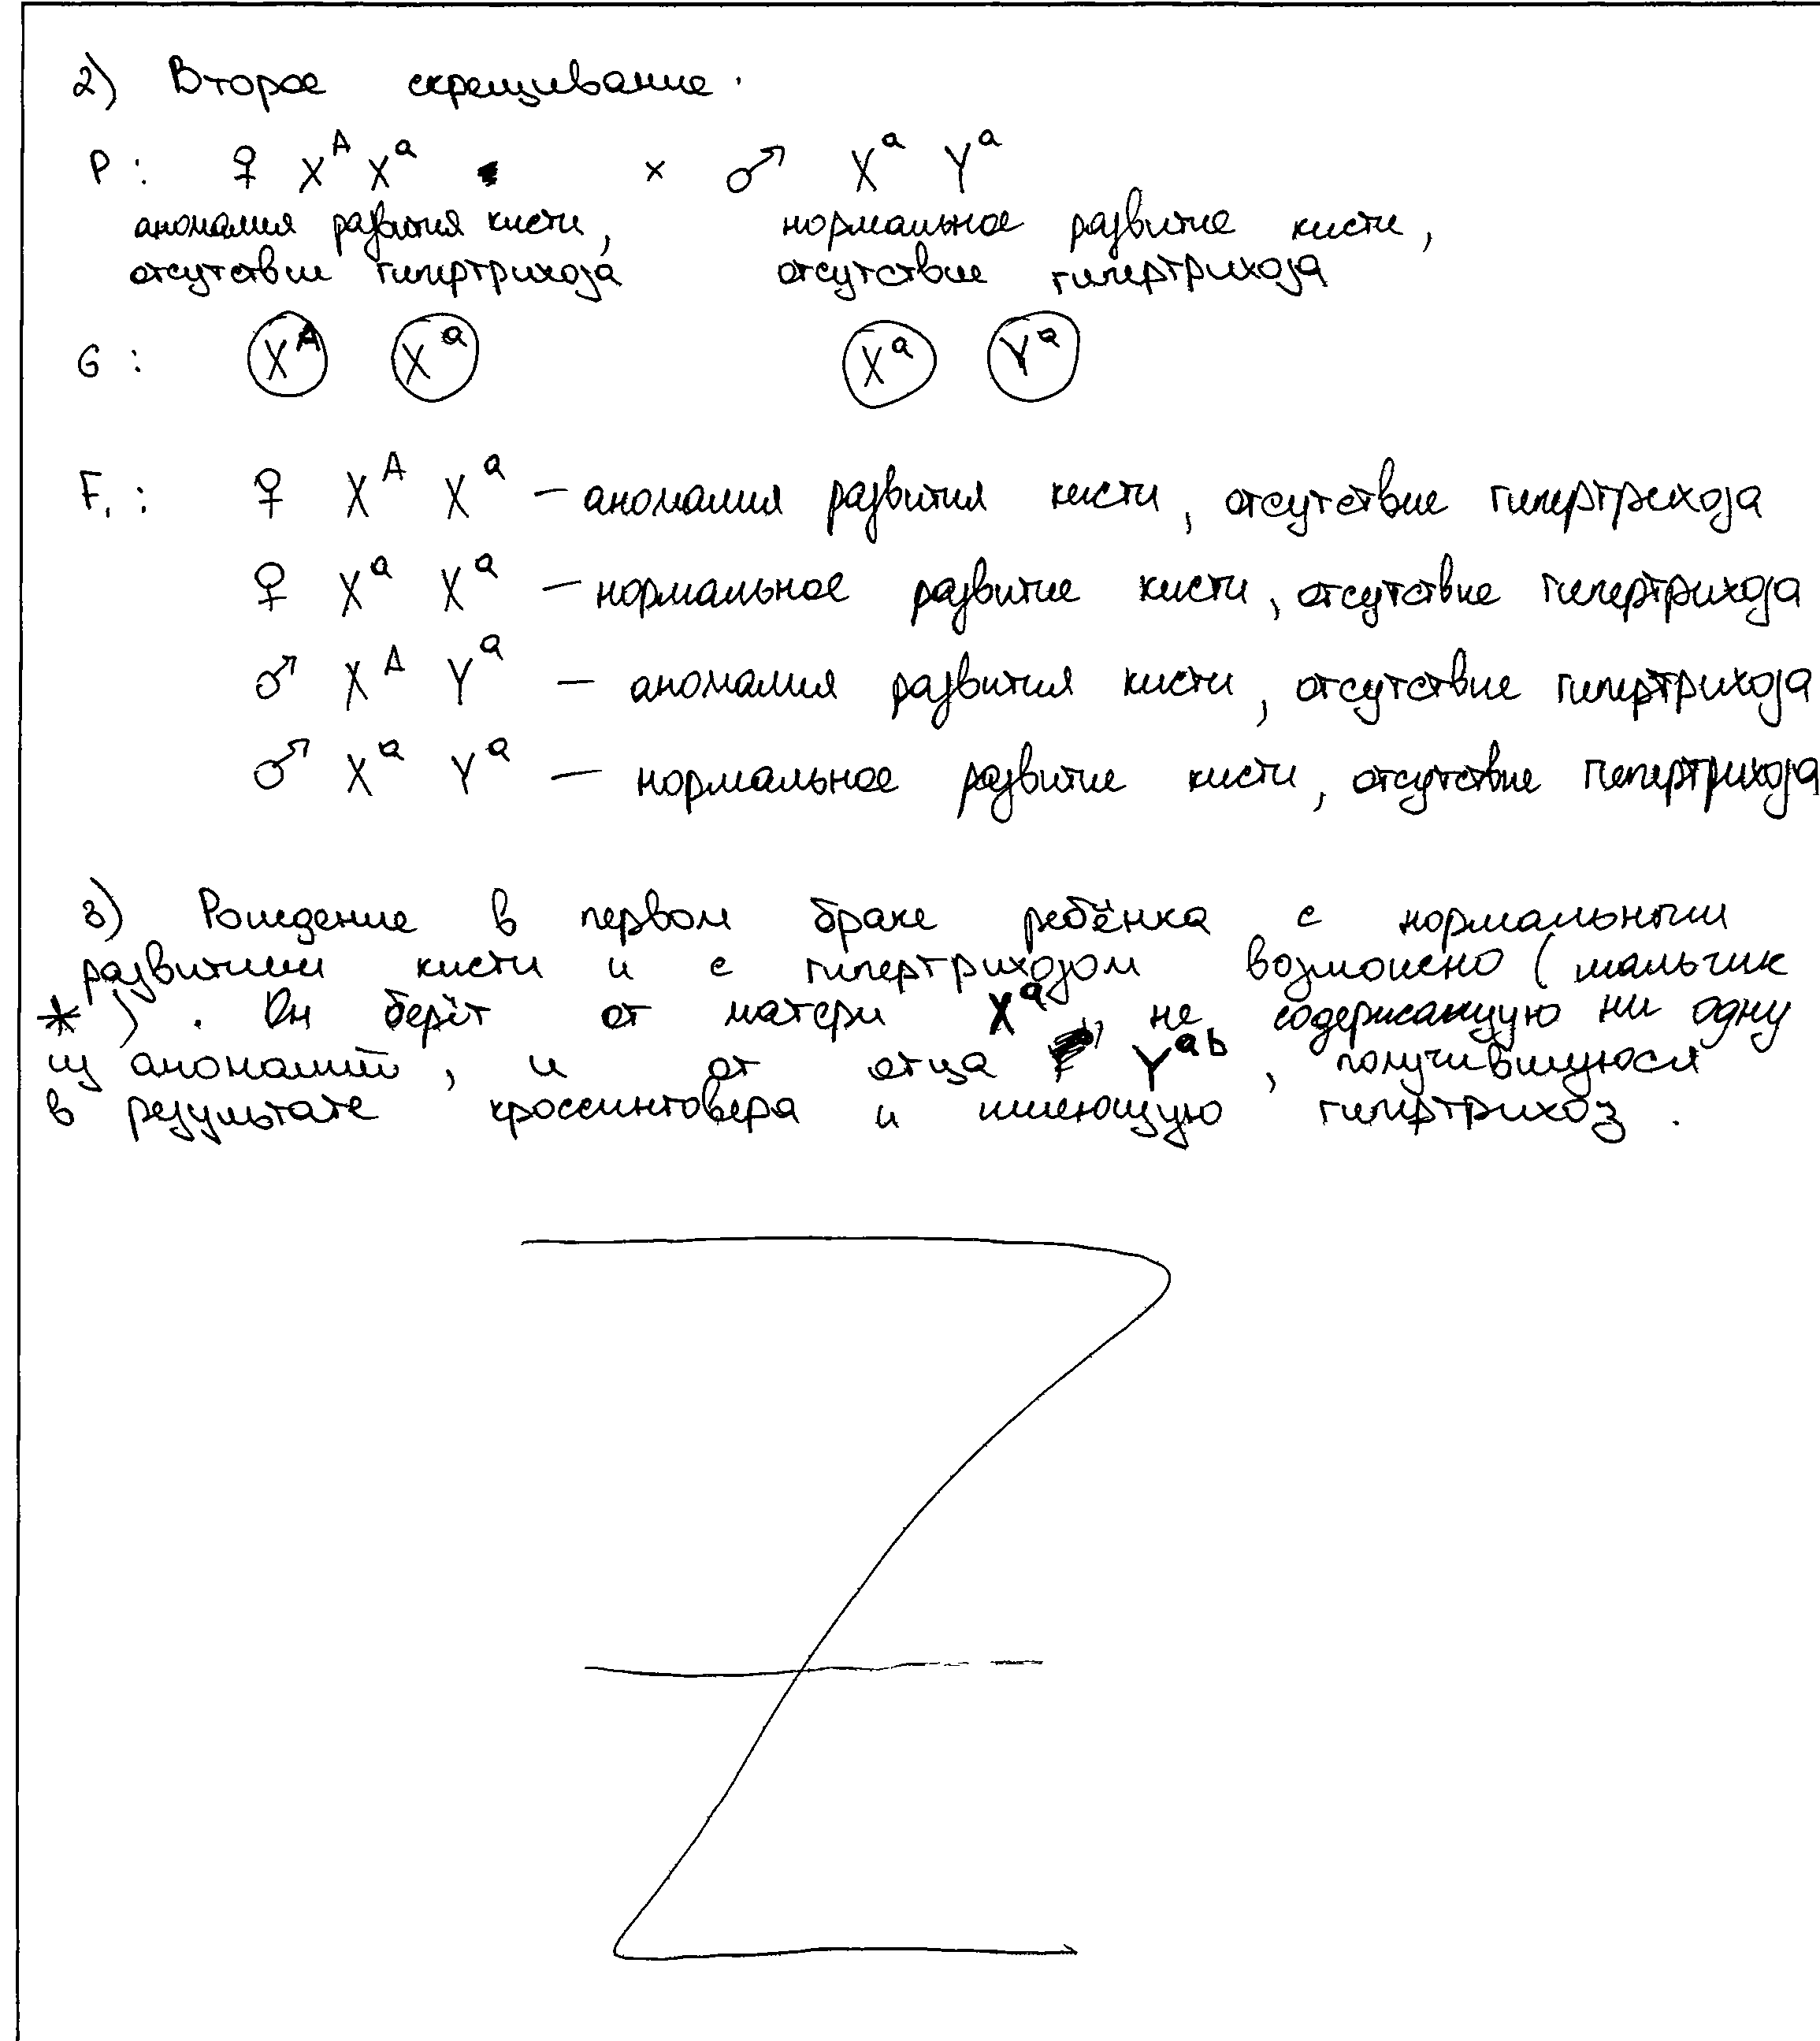 2) Второе скрещивание.
P: ♀ X^A X^a × ♂ X^a Y^a
аномалия развития кисти, нормальное развитие кисти,
отсутствие гипертрихоза отсутствие гипертрихоза
G: X^A X^a X^a Y^a
F₁: ♀ X^A X^a — аномалия развития кисти, отсутствие гипертрихоза
♀ X^a X^a — нормальное развитие кисти, отсутствие гипертрихоза
♂ X^A Y^a — аномалия развития кисти, отсутствие гипертрихоза
♂ X^a Y^a — нормальное развитие кисти, отсутствие гипертрихоза
3) Рождение в первом браке ребёнка с нормальным
развитием кисти и с гипертрихозом возможно (мальчик
*). Он берёт от матери X^a, не содержащую ни одну
из аномалий, и от отца Y^ab, получившуюся
в результате кроссинговера и имеющую гипертрихоз.